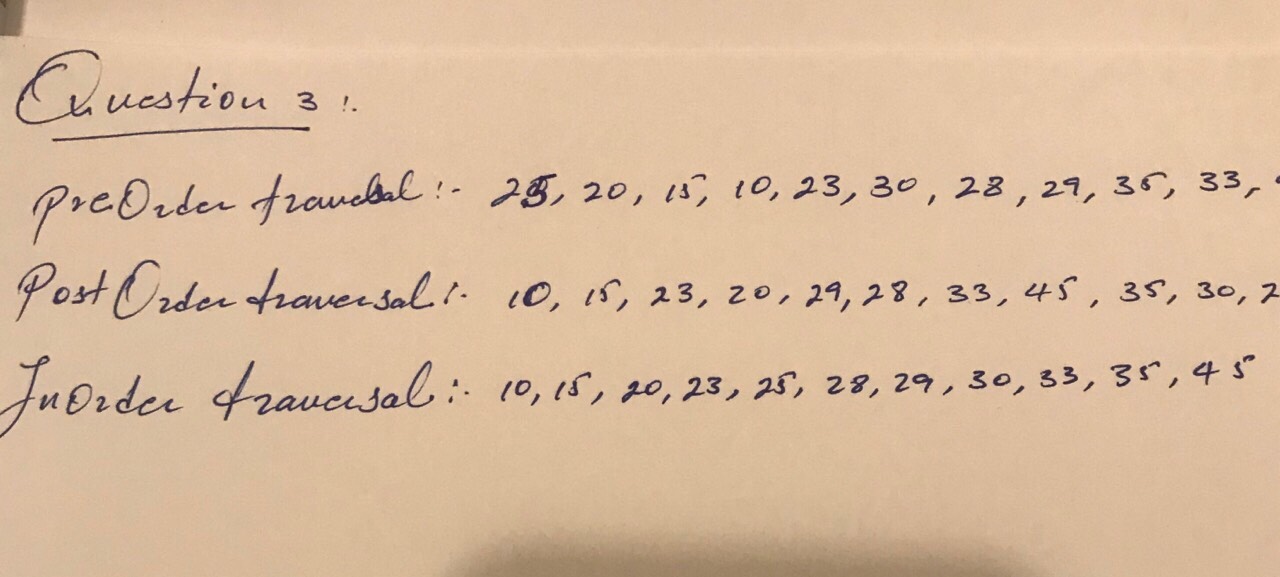 Question 3 :.
PreOrder traversal :- 25, 20, 15, 10, 23, 30, 28, 29, 35, 33,
Post Order traversal :- 10, 15, 23, 20, 29, 28, 33, 45, 35, 30, 2
InOrder traversal :- 10, 15, 20, 23, 25, 28, 29, 30, 33, 35, 45